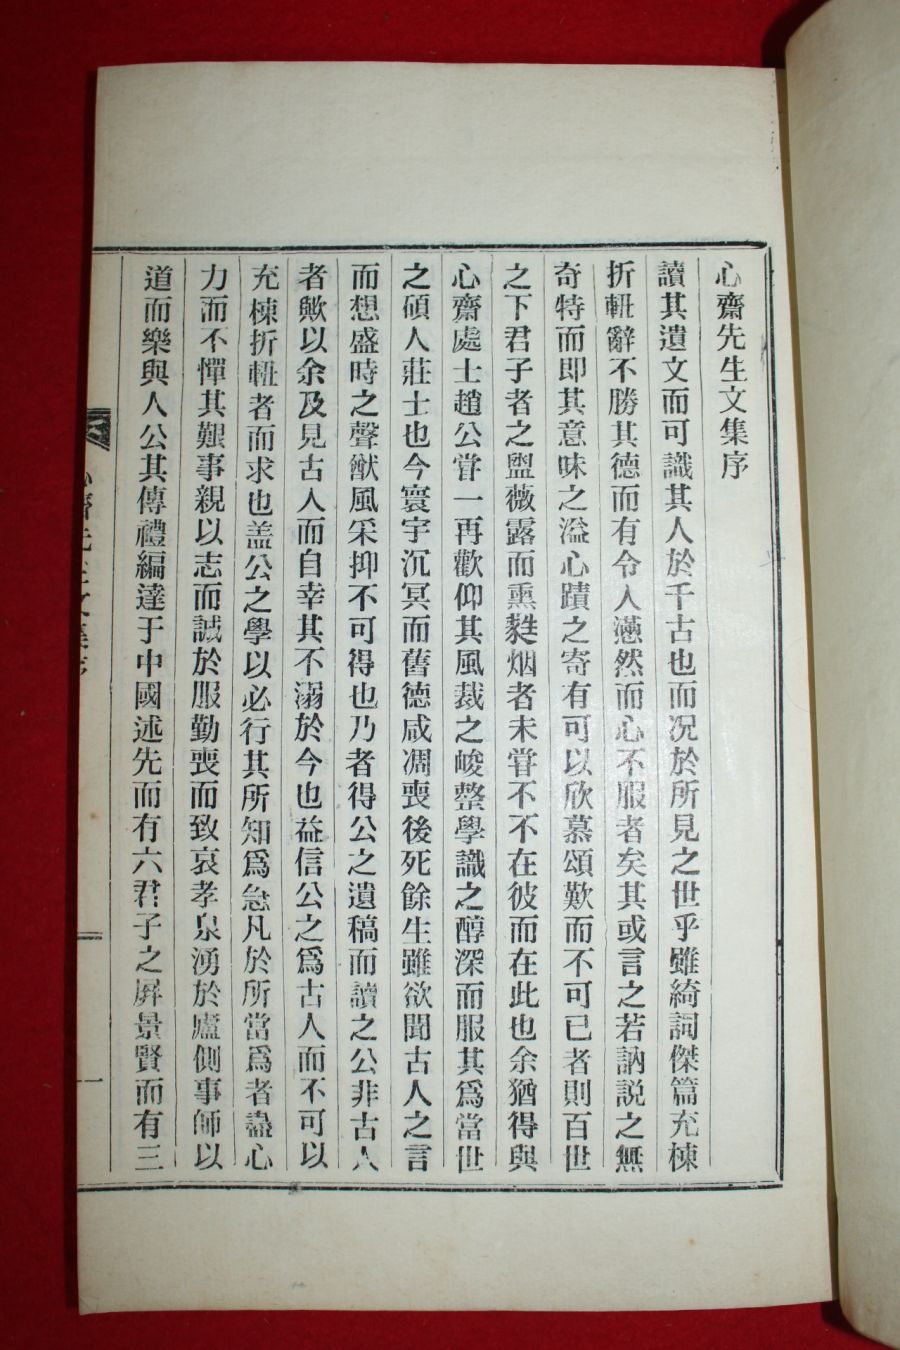 心齋先生文集序
讀其遺文而可識其人於千古也而况於所見之世乎雖綺詞傑篇充棟
折軠辭不勝其德而有令人懣然而心不服者矣其或言之若訥説之無
奇特而即其意味之溢心蹟之寄有可以欣慕頌歎而不可已者則百世
之下君子者之盥薇露而熏 烟者未甞不不在彼而在此也余猶得與
心齋處士趙公甞一再歡仰其風裁之峻整學識之醇深而服其爲當世
之碩人莊士也今寰宇沉冥而舊德咸凋喪後死餘生雖欲聞古人之言
而想盛時之聲猷風采抑不可得也乃者得公之遺稿而讀之公非古人
者歟以余及見古人而自幸其不溺於今也益信公之爲古人而不可以
充棟折軠者而求也盖公之學以必行其所知爲急凡於所當爲者盡心
力而不憚其艱事親以志而誠於服勤喪而致哀孝泉湧於廬側事師以
道而樂與人公其傳禮編達于中國述先而有六君子之屛景賢而有三
心齋先生文集序
一